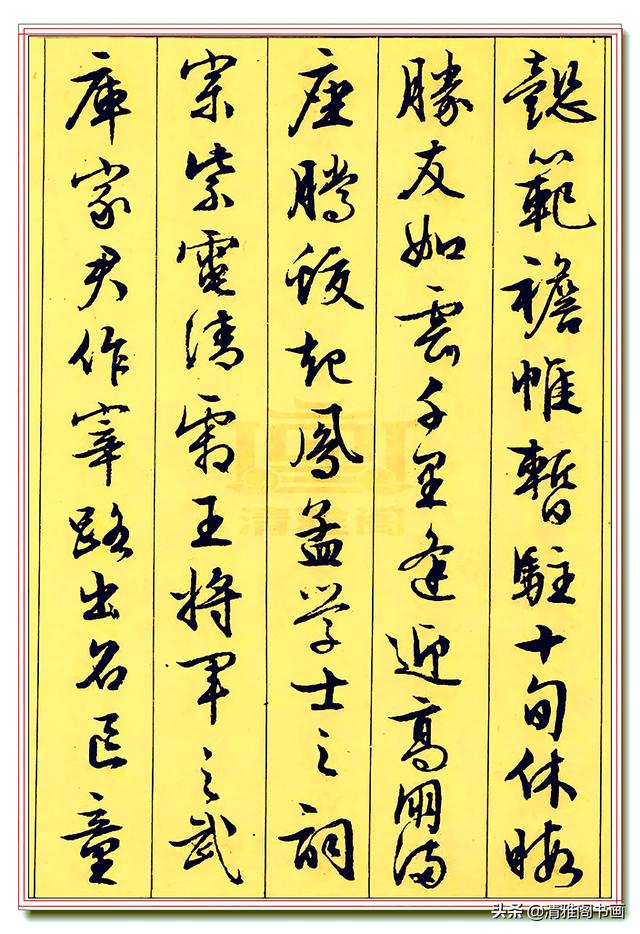 懿範襜帷暫駐十旬休暇
勝友如雲千里逢迎高朋滿
座騰蛟起鳳孟學士之詞
宗紫電清霜王將軍之武
庫家君作宰路出名區童
清雅阁
头条 @清雅阁书画